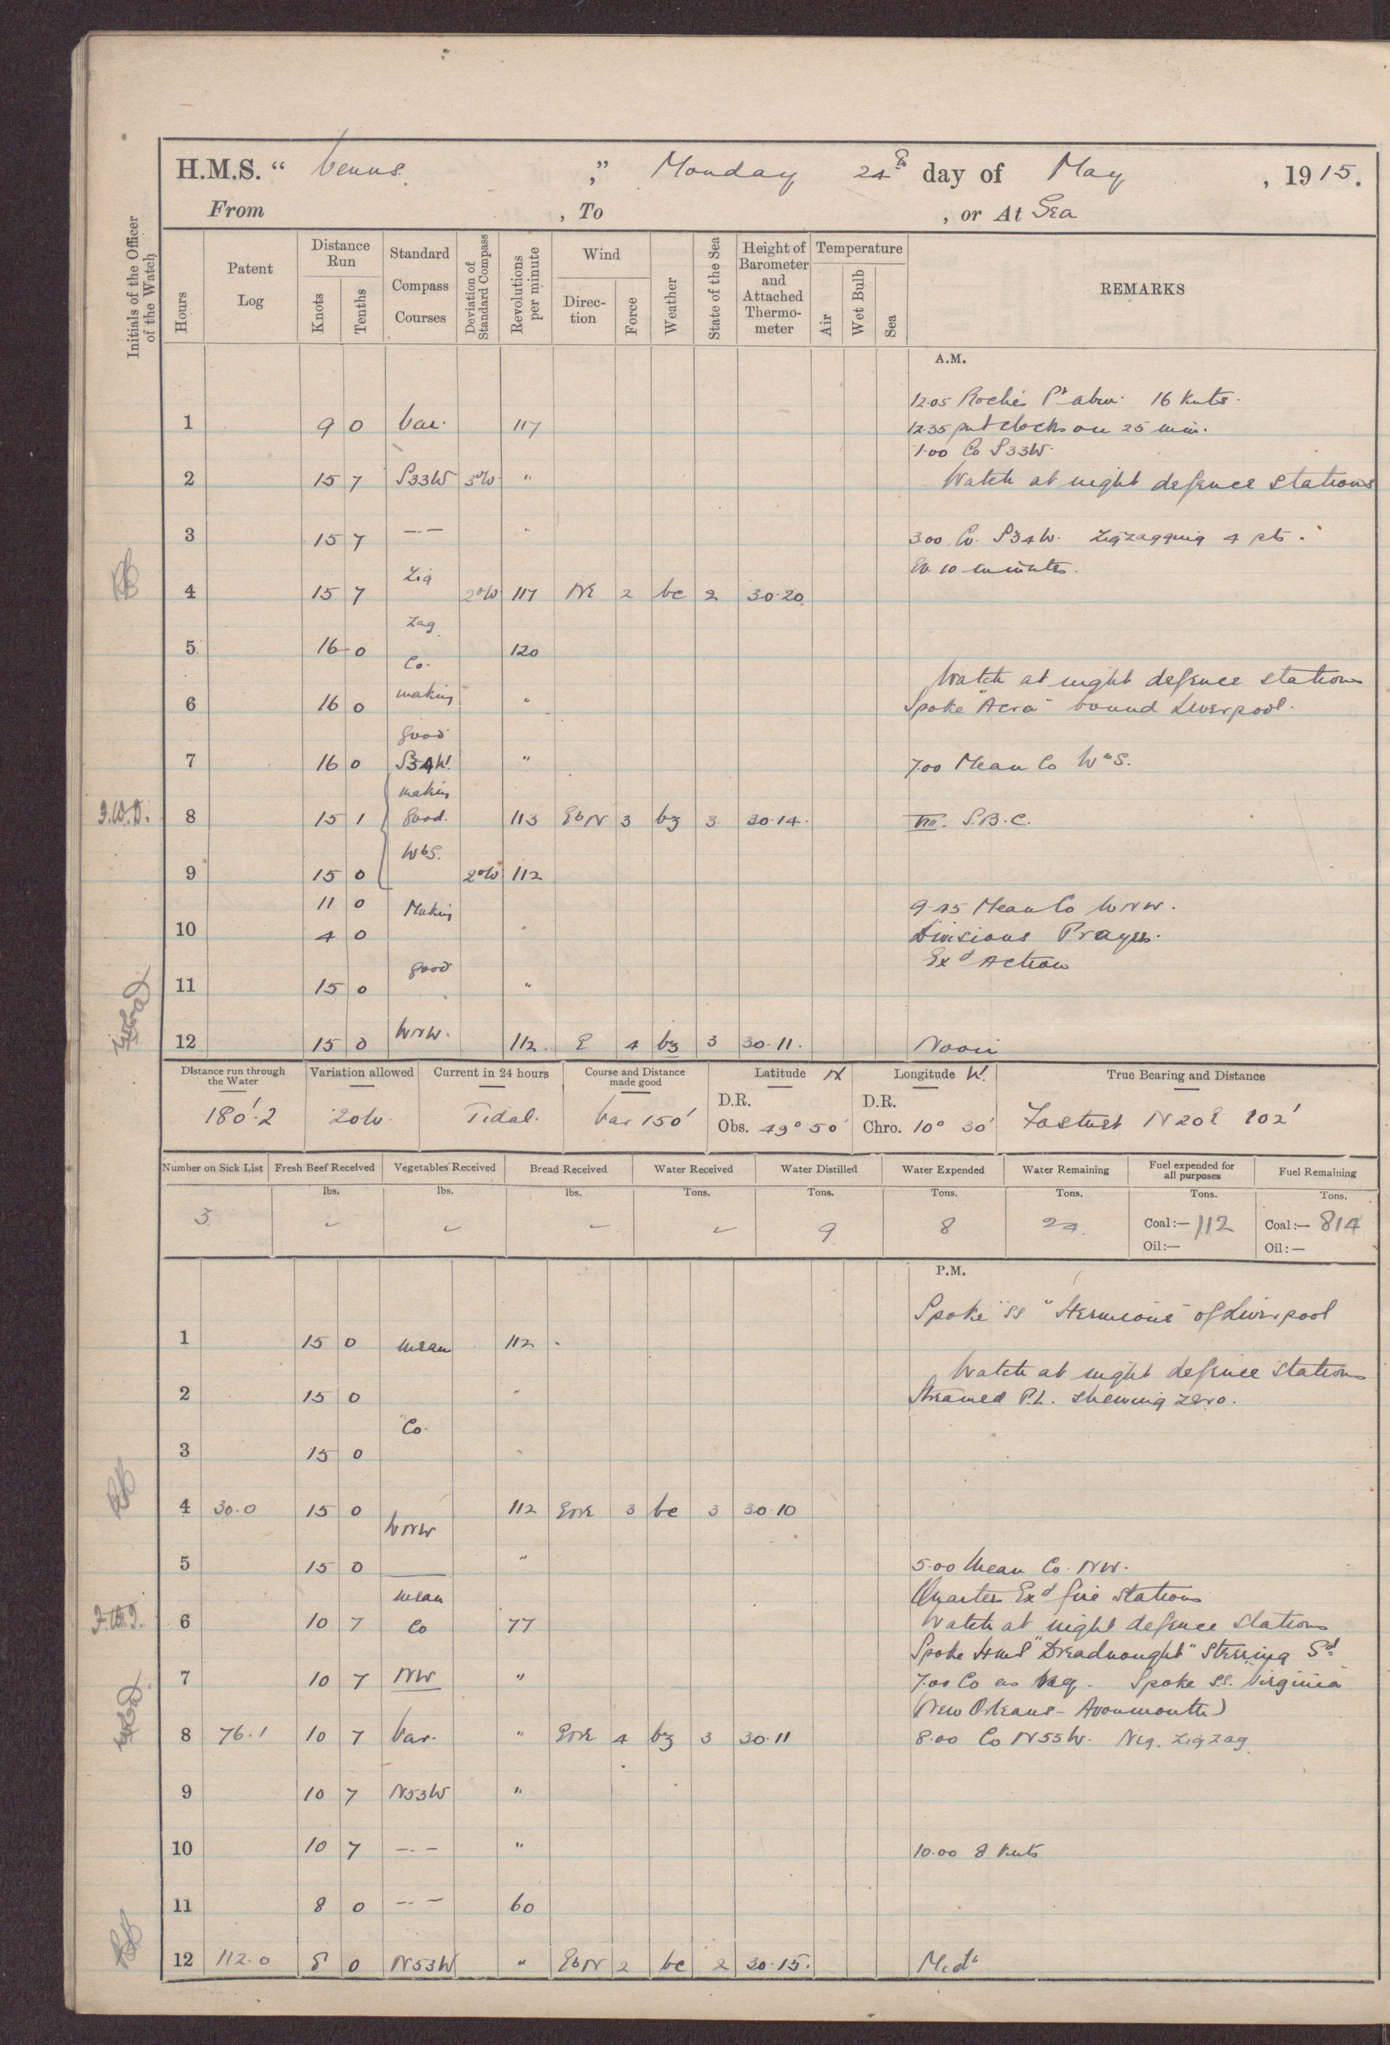 H.M.S. " Venus " Monday 24th day of May , 1915.
From , To , or At Sea
Initials of the Officer of the Watch
Hours
Patent Log
Distance Run
Knots
Tenths
Standard Compass Courses
Deviation of Standard Compass
Revolutions per minute
Wind
Direc-tion
Force
Weather
State of the Sea
Height of Barometer and Attached Thermo-meter
Temperature
Air
Wet Bulb
Sea
REMARKS
A.M.
12.05 Roches Pt abm. 16 Knts.
1 9 0 Var. 117 12.35 put clocks on 25 min.
1.00 Co S33W.
2 15 7 S33W 3°W " Watch at night defence stations
3 15 7 — — " 3.00 Co. S34W. Zigzagging 4 pts.
Zig Ev. 10 minutes.
4 15 7 2°W 117 NE 2 bc 2 30.20
Zag
5 16 0 120
Co.
Watch at night defence stations
6 16 0 making " Spoke "Acra" bound Liverpool.
good
7 16 0 S34W. " 7.00 Mean Co WbS.
making
J.W.D. 8 15 1 good. 113 EbN 3 bz 3 30.14. VIII. S.B.C.
WbS.
9 15 0 2°W 112
11 0 Making 9.45 Mean Co WNW.
10 4 0 " Divisions Prayers.
good Exd Action
11 15 0 "
12 15 0 WNW. 112. E 4 bz 3 30.11. Noon
Distance run through the Water
Variation allowed
Current in 24 hours
Course and Distance made good
Latitude N
Longitude W.
True Bearing and Distance
D.R. D.R.
180'.2 20W. Tidal. Var 150' Obs. 49° 50' Chro. 10° 30' Fastnet N20E 102'
Number on Sick List Fresh Beef Received Vegetables Received Bread Received Water Received Water Distilled Water Expended Water Remaining Fuel expended for all purposes Fuel Remaining
lbs. lbs. lbs. Tons. Tons. Tons. Tons. Tons. Tons.
3 9 8 24 Coal:— 112 Coal:— 814
Oil:— Oil:—
P.M.
Spoke "SS "Hermione" of Liverpool
1 15 0 mean 112
Watch at night defence stations
2 15 0 " Streamed P.L. shewing zero.
Co.
3 15 0 "
4 30.0 15 0 112 ENE 3 bc 3 30.10
WNW
5 15 0 " 5.00 Mean Co. NW.
mean Quarters Exd fire stations
6 10 7 Co 77 Watch at night defence stations
Spoke HMS "Dreadnought" Steering Sd
7 10 7 NW " 7.00 Co as req. Spoke SS. "Virginia"
(New Orleans - Avonmouth)
8 76.1 10 7 Var. " ENE 4 bz 3 30.11 8.00 Co N55W. Neg. Zigzag
9 10 7 N53W "
10 10 7 — — " 10.00 8 Knts
11 8 0 — — 60
12 112.0 8 0 N53W " EbN 2 bc 2 30.15. Midt